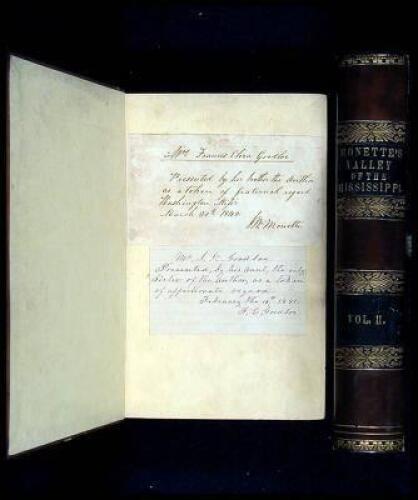 Mrs Frances Eliza Goodloe
Presented by her brother the Author
as a token of fraternal regard
Washington Mifs
March 30th 1846
JW Monette
Mr. J. K. Goodloe
Presented by his Aunt, the only
Sister of the Author, as a token
of affectionate regard
February the 10th
F. E. Goodloe
MONETTE'S
VALLEY
OF THE
MISSISSIPPI.
VOL. II.